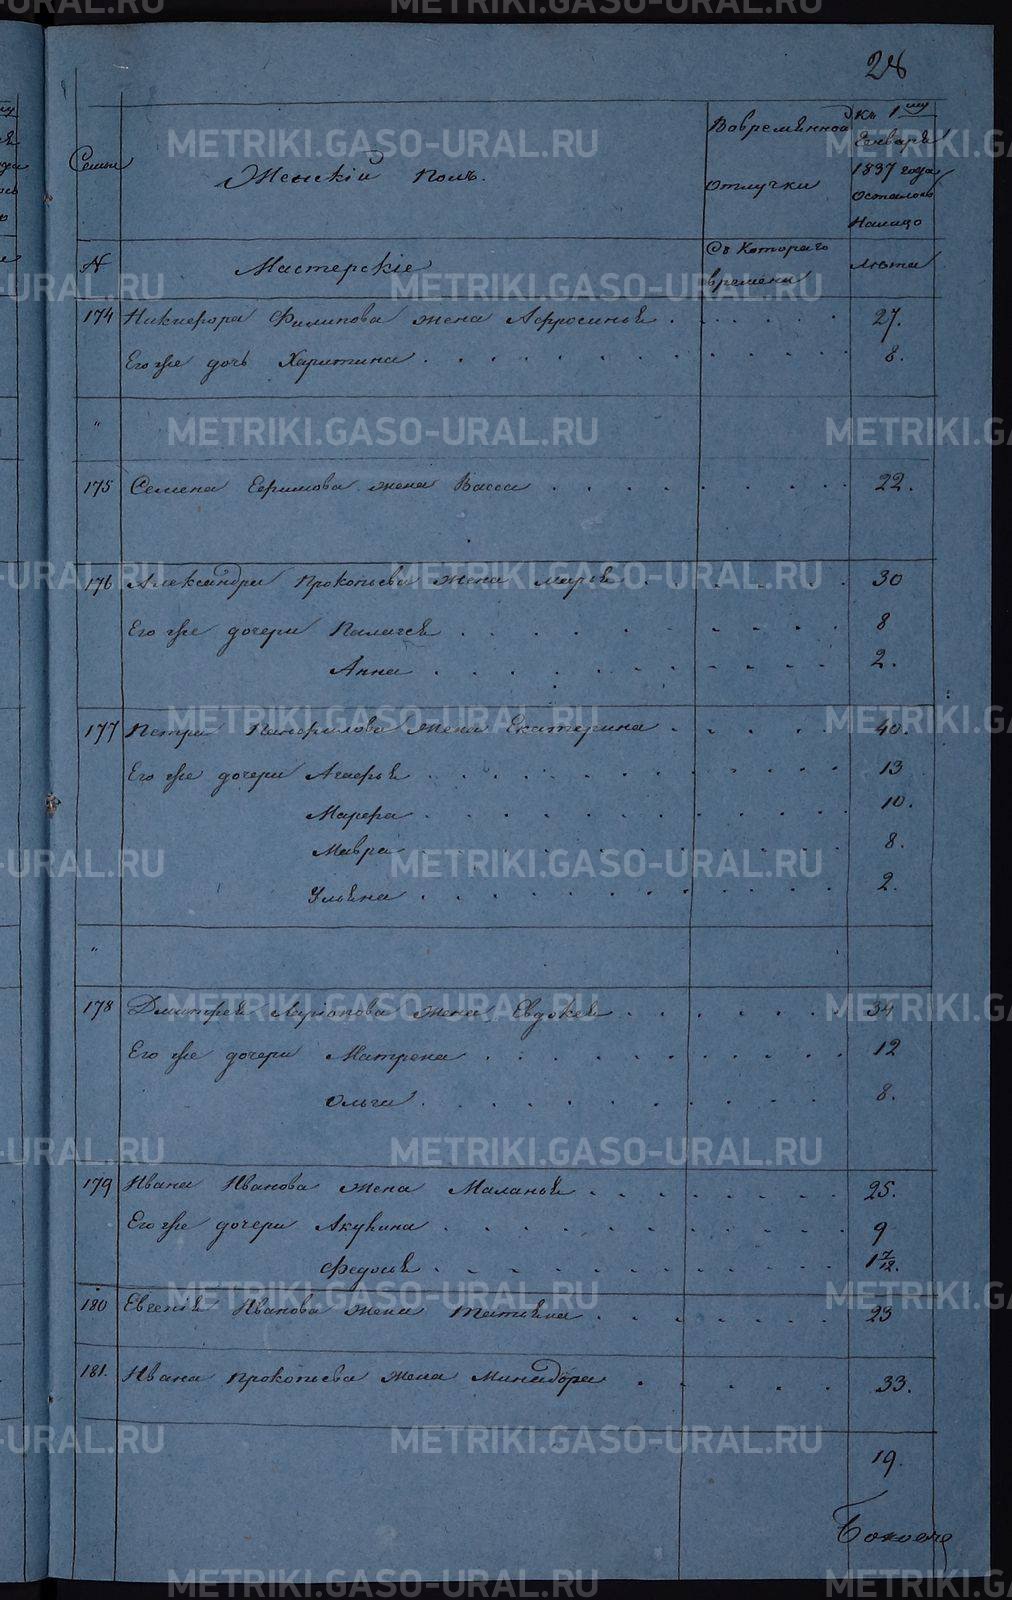 28
Семьи
Женскiй полъ.
Вовременной отлучки
Къ 1му Генваря 1837 года осталось Налицо
№
Мастерскiе
Съ Котораго времени
Лѣта
174 Никифора Филипова жена Афросинья . . . . . . 27.
Его же дочь Харитина . . . . . . 8.
"
175 Семена Ефимова жена Васса . . . . . . 22.
176 Александра Прокопьева жена Марья . . . . . . 30
Его же дочери Палагея . . . . . . 8
Анна . . . . . . 2.
177 Петра Панфилова жена Екатерина . . . . . . 40.
Его же дочери Агафья . . . . . . 13
Марфа . . . . . . 10.
Мавра . . . . . . 8.
Ульяна . . . . . . 2.
"
178 Дмитрея Ларiонова жена Евдокея . . . . . . 34
Его же дочери Матрена . . . . . . 12
Ольга . . . . . . 8.
179 Ивана Иванова жена Маланья . . . . . . 25.
Его же дочери Акулина . . . . . . 9
Федосья . . . . . . 1 7/12.
180 Евгенiя Иванова жена Татьяна . . . . . . 23
181. Ивана Прокопьева жена Минадора . . . . . . 33.
19.
METRIKI.GASO-URAL.RU